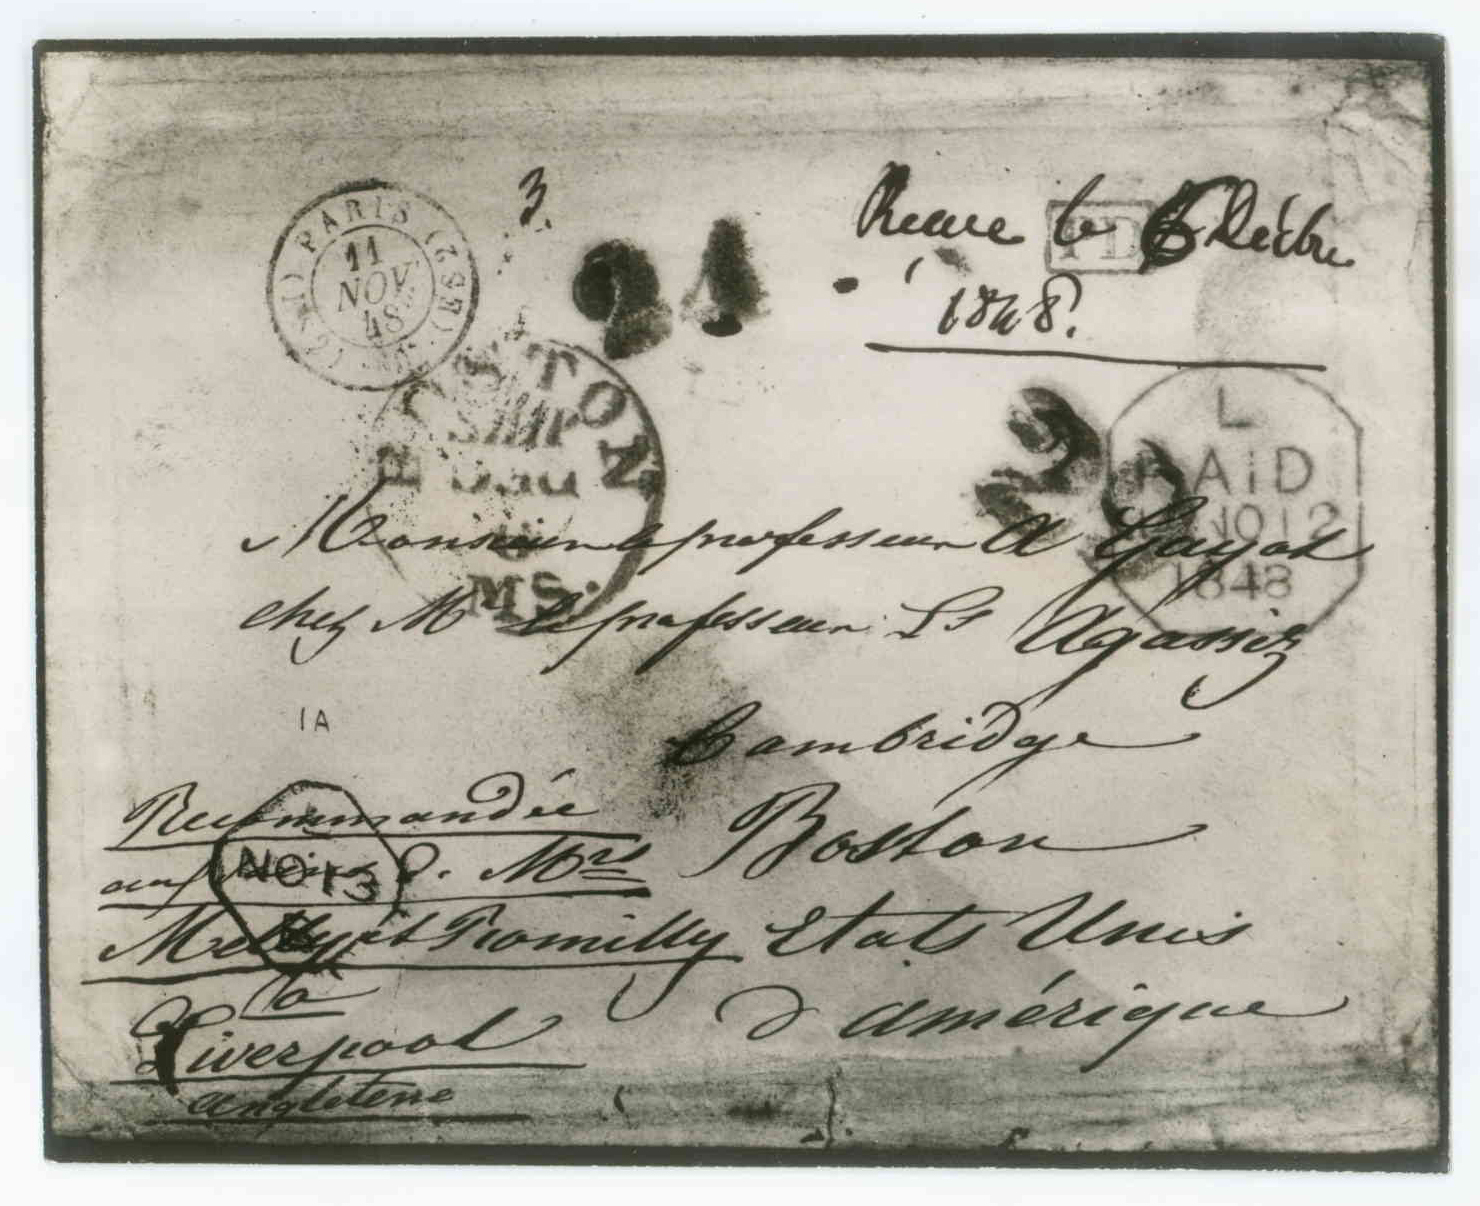 PARIS
11
NOV
48
(60)
3.
21
Recue le 6 Décbre
1848.
PD
BOSTON
SHIP
DEC
MS.
20
L
PAiD
NO 12
1848
Monsieur le professeur A Guyot
chez Mr le professeur Ls Agassiz
1A
Cambridge
Boston
Etats Unis
d'amérique
Recommandée
aux soins d. Mrs
Melly et Romilly
à
Liverpool
Angleterre
NO 13